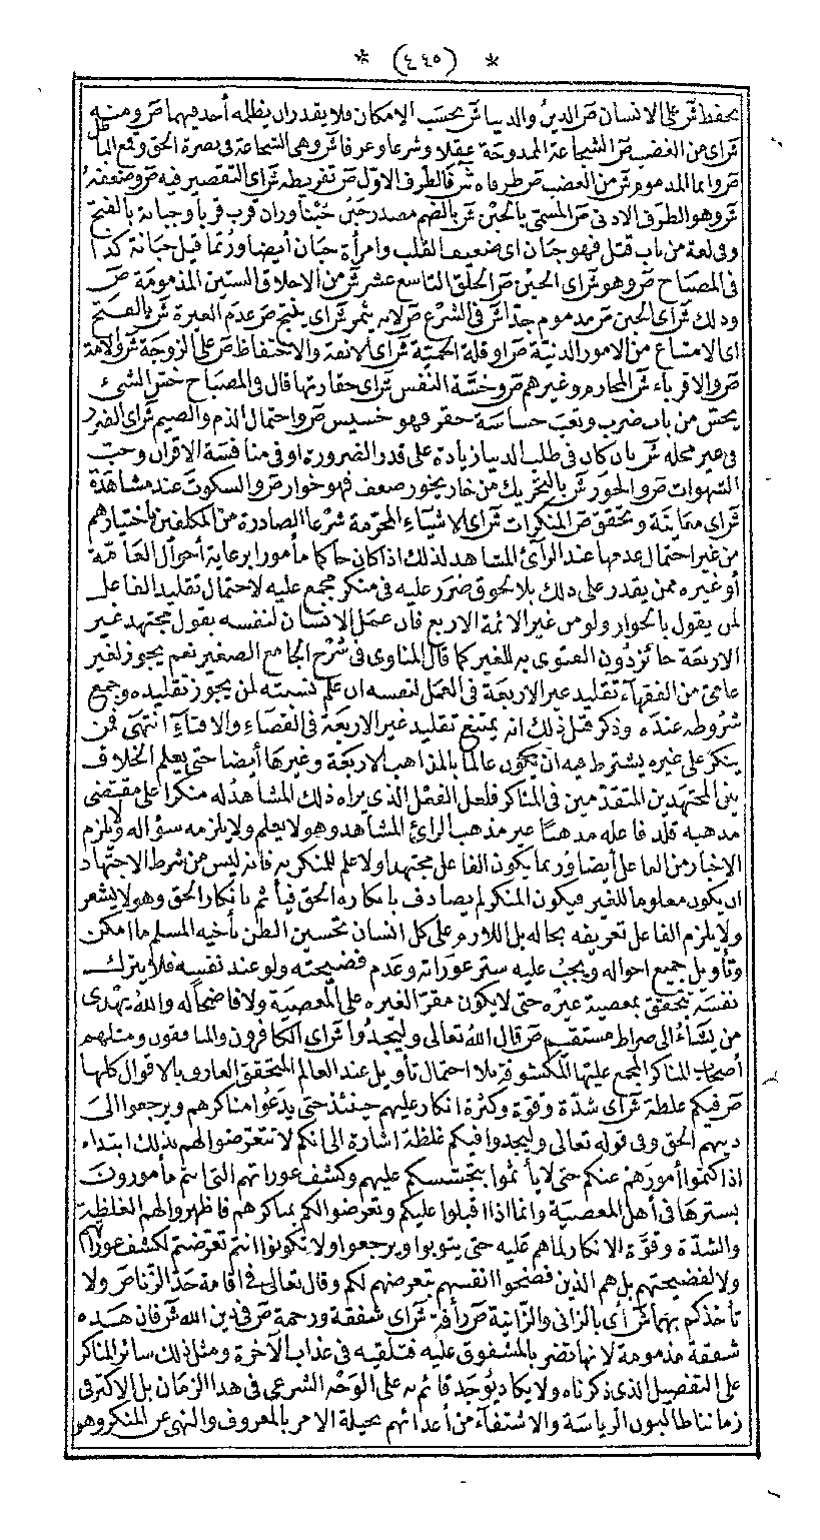 * (٤٤٥) *
يحفظ ش على الانسان ص الدين والدنيا ش بحسب الإمكان فلا يقدر ان يظلمه أحد فيهما ص ومنه
ش أى من الغضب ص الشجاعة الممدوحة عقلا وشرعا وعرفا ش وهى الشجاعة فى نصرة الحق وقمع الباطل
ص واما المذموم ش من الغضب ص طرفاه ش فالطرف الاوّل ص تفريطه ش أى التقصير فيه ص وضعفه
ش وهو الطرف الادنى ص المسمى بالجبن ش بالضم مصدر جبن جبنا وزان قرب قربا وجبانة بالفتح
وفى لغة من باب قتل فهو جبان اى ضعيف القلب وامرأة جبان أيضا وربما قيل جبانة كذا
فى المصباح ص وهو ش أى الجبن ص الخلق التاسع عشر ش من الاخلاق الستين المذمومة ص
وذلك ش أى الجبن ص مذموم جدا ش فى الشرع ص لانه يثمر ش اى ينتج ص عدم الغيرة ش بالفتح
اى الامتناع من الامور الدنية ص او قلة الحمية ش أى الانفة والاحتفاظ ص على الزوجة ش والامة
ص والاقرباء ش المحارم وغيرهم ص وخسّة النفس ش أى حقارتها قال فى المصباح خسّ الشئ
يخس من باب ضرب وتعب خساسة حقر فهو خسيس ص واحتمال الذم والضيم ش أى الضرر
فى غير محله ش بان كان فى طلب الدنيا زيادة على قدر الضرورة او فى منافسة الاقران وحب
الشهوات ص والخور ش بالتحريك من خار يخور ضعف فهو خوار ص والسكوت عند مشاهدة
ش أى معاينة وتحقق ص المنكرات ش أى الاشياء المحرّمة شرعا الصادرة من المكلفين باختيارهم
من غير احتمال عدمها عند الرأى المشاهد لذلك اذا كان حاكما مأمورا برعاية أحوال العامّة
أو غيره ممن يقدر على ذلك بلا لحوق ضرر عليه فى منكر مجمع عليه لاحتمال تقليد الفاعل
لمن يقول بالجواز ولو من غير الائمة الاربع فان عمل الانسان لنفسه بقول مجتهد غير
الاربعة جائز دون الفتوى به للغير كما قال المناوى فى شرح الجامع الصغير نعم يجوز لغير
عامى من الفقهاء تقليد غير الاربعة فى العمل لنفسه ان علم نسبته لمن يجوز تقليده وجمع
شروطه عنده وذكر قبل ذلك انه يمتنع تقليد غير الاربعة فى القضاء والافتاء انتهى فمن
ينكر على غيره يشترط فيه ان يكون عالما بالمذاهب الاربعة وغيرها أيضا حتى يعلم الخلاف
بين المجتهدين المتقدّمين فى المناكر فلعل الفعل الذى يراه ذلك المشاهد له منكرا على مقتضى
مذهبه قلد فاعله مذهبا غير مذهب الرائى المشاهد وهو لا يعلم ولا يلزمه سؤاله ولا يلزم
الاخبار من الفاعل أيضا وربما يكون الفاعل مجتهدا ولا علم للمنكر به فانه ليس من شرط الاجتهاد
ان يكون معلوما للغير فيكون المنكر لم يصادف بانكاره الحق فيأثم بانكار الحق وهو لا يشعر
ولا يلزم الفاعل تعريفه بحاله بل اللازم على كل انسان تحسين الظن بأخيه المسلم ما امكن
وتأويل جميع احواله ويجب عليه ستر عوراته وعدم فضيحته ولو عند نفسه فلا يترك
نفسه تتحقق بمعصية غيره حتى لا يكون مقرّا لغيره على المعصية ولا فاضحا له والله يهدى
من يشاء الى صراط مستقيم ص قال الله تعالى وليجدوا ش أى الكافرون والمنافقون ومثلهم
أصحاب المناكر المجمع عليها المكشوفة بلا احتمال تأويل عند العالم المتحقق العارف بالاقوال كلها
ص فيكم غلظة ش أى شدّة وقوّة وكثرة انكار عليهم حينئذ حتى يدعوا مناكرهم ويرجعوا الى
دينهم الحق وفى قوله تعالى وليجدوا فيكم غلظة اشارة الى انكم لا تتعرّضوا لهم بذلك ابتداء
اذا كتموا أمورهم عنكم حتى لا يأثموا بتجسسكم عليهم وكشف عوراتهم التى انتم مأمورون
بسترها فى أهل المعصية وانما اذا اقبلوا عليكم وتعرضوا لكم بمناكرهم فاظهروا لهم الغلظة
والشدّة وقوّة الانكار لما هم عليه حتى يتوبوا ويرجعوا ولا تكونوا انتم تعرّضتم لكشف عوراتهم
ولا لفضيحتهم بل هم الذين فضحوا انفسهم بتعرضهم لكم وقال تعالى فى اقامة حدّ الزنا ص ولا
تأخذكم بهما ش أى بالزانى والزانية ص رأفة ش أى شفقة ورحمة ص فى دين الله ش فان هذه
شفقة مذمومة لانها تضر بالمشفوق عليه فتلقيه فى عذاب الآخرة ومثل ذلك سائر المناكر
على التفصيل الذى ذكرناه ولا يكاد يوجد قائم به على الوجه الشرعى فى هذا الزمان بل الاكثر فى
زماننا طالبون الرياسة والاشتفاء من أعدائهم بحيلة الامر بالمعروف والنهى عن المنكر وهو